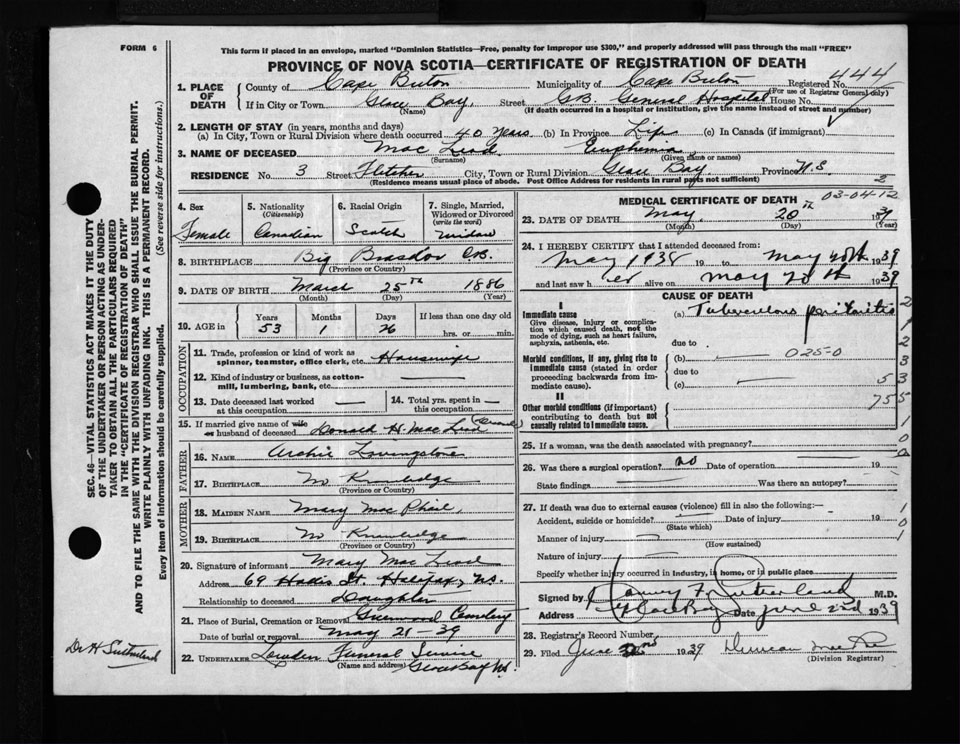 FORM 6
This form if placed in an envelope, marked "Dominion Statistics—Free, penalty for improper use $300," and properly addressed will pass through the mail "FREE"
PROVINCE OF NOVA SCOTIA—CERTIFICATE OF REGISTRATION OF DEATH
444
1. PLACE OF DEATH County of Cape Breton Municipality of Cape Breton Registered No.
(For use of Registrar General only)
If in City or Town Glace Bay, Street G.B. General Hospital House No.
(Name) (If death occurred in a hospital or institution, give the name instead of street and number)
2. LENGTH OF STAY (in years, months and days)
(a) In City, Town or Rural Division where death occurred 40 Years (b) In Province Life (c) In Canada (if immigrant)
3. NAME OF DECEASED Mac Leod Euphemia
(Surname) (Given name or names)
RESIDENCE No. 3 Street Fletcher City, Town or Rural Division Glace Bay Province N.S
(Residence means usual place of abode. Post Office Address for residents in rural parts not sufficient)
4. Sex Female
5. Nationality (Citizenship) Canadian
6. Racial Origin Scotch
7. Single, Married, Widowed or Divorced (write the word) Widow
8. BIRTHPLACE Big Brasdor CB.
(Province or Country)
9. DATE OF BIRTH March 25TH 1886
(Month) (Day) (Year)
10. AGE in Years Months Days If less than one day old
53 1 26 hrs. or min.
OCCUPATION
11. Trade, profession or kind of work as spinner, teamster, office clerk, etc. Housewife
12. Kind of industry or business, as cotton-mill, lumbering, bank, etc.
13. Date deceased last worked at this occupation
14. Total yrs. spent in this occupation
15. If married give name of wife or husband of deceased Donald H. Mac Leod
FATHER
16. NAME Archie Livingstone
17. BIRTHPLACE No Knowledge
(Province or Country)
MOTHER
18. MAIDEN NAME Mary Mac Phail,
19. BIRTHPLACE No Knowledge
(Province or Country)
20. Signature of informant Mary Mac Leod
Address 69 Hollis St. Halifax, N.S.
Relationship to deceased Daughter
21. Place of Burial, Cremation or Removal Greenwood Cemetery
Date of burial or removal May 21-39
22. UNDERTAKER Lowden Funeral Service
(Name and address) Glace Bay N.S.
MEDICAL CERTIFICATE OF DEATH
03-04-12
23. DATE OF DEATH May 20th 1939
(Month) (Day) (Year)
24. I HEREBY CERTIFY that I attended deceased from:
May 1938 19 to May 20th 1939
and last saw her alive on May 20th 1939
CAUSE OF DEATH
I
Immediate cause (a) Tuberculous peritonitis
Give disease, injury or complication which caused death, not the mode of dying, such as heart failure, asphyxia, asthenia, etc.
due to
Morbid conditions, if any, giving rise to immediate cause (stated in order proceeding backwards from immediate cause).
(b) 025-0
due to
(c)
II
Other morbid conditions (if important) contributing to death but not causally related to immediate cause.
25. If a woman, was the death associated with pregnancy?
26. Was there a surgical operation? no Date of operation 19
State findings Was there an autopsy?
27. If death was due to external causes (violence) fill in also the following:—
Accident, suicide or homicide? Date of injury 19
(State which)
Manner of injury
(How sustained)
Nature of injury
Specify whether injury occurred in industry, in home, or in public place
Signed by Harvey F. Sutherland M.D.
Address Glace Bay Date June 2nd 1939
28. Registrar's Record Number
29. Filed June 2nd 1939
(Division Registrar)
SEC. 46—VITAL STATISTICS ACT MAKES IT THE DUTY
OF THE UNDERTAKER OR PERSON ACTING AS UNDER-
TAKER TO OBTAIN ALL THE PARTICULARS REQUIRED
IN THE "CERTIFICATE OF REGISTRATION OF DEATH"
AND TO FILE THE SAME WITH THE DIVISION REGISTRAR WHO SHALL ISSUE THE BURIAL PERMIT.
WRITE PLAINLY WITH UNFADING INK. THIS IS A PERMANENT RECORD.
Every item of information should be carefully supplied. (See reverse side for instructions.)
Dr H Sutherland